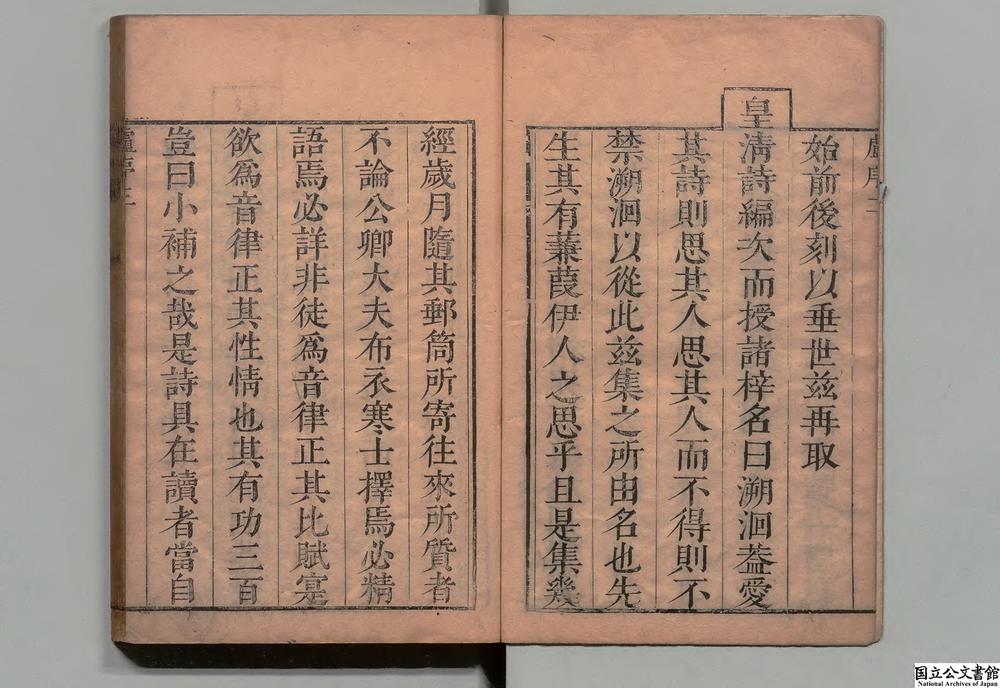 始前後刻以垂世茲再取
皇清詩編次而授諸梓名曰溯洄葢愛
其詩則思其人思其人而不得則不
禁溯洄以從此茲集之所由名也先
生其有蒹葭伊人之思乎且是集幾
經歲月隨其郵筒所寄往來所質者
不論公卿大夫布衣寒士擇焉必精
語焉必詳非徒為音律正其比賦寔
欲為音律正其性情也其有功三百
豈曰小補之哉是詩具在讀者當自
国立公文書館
National Archives of Japan